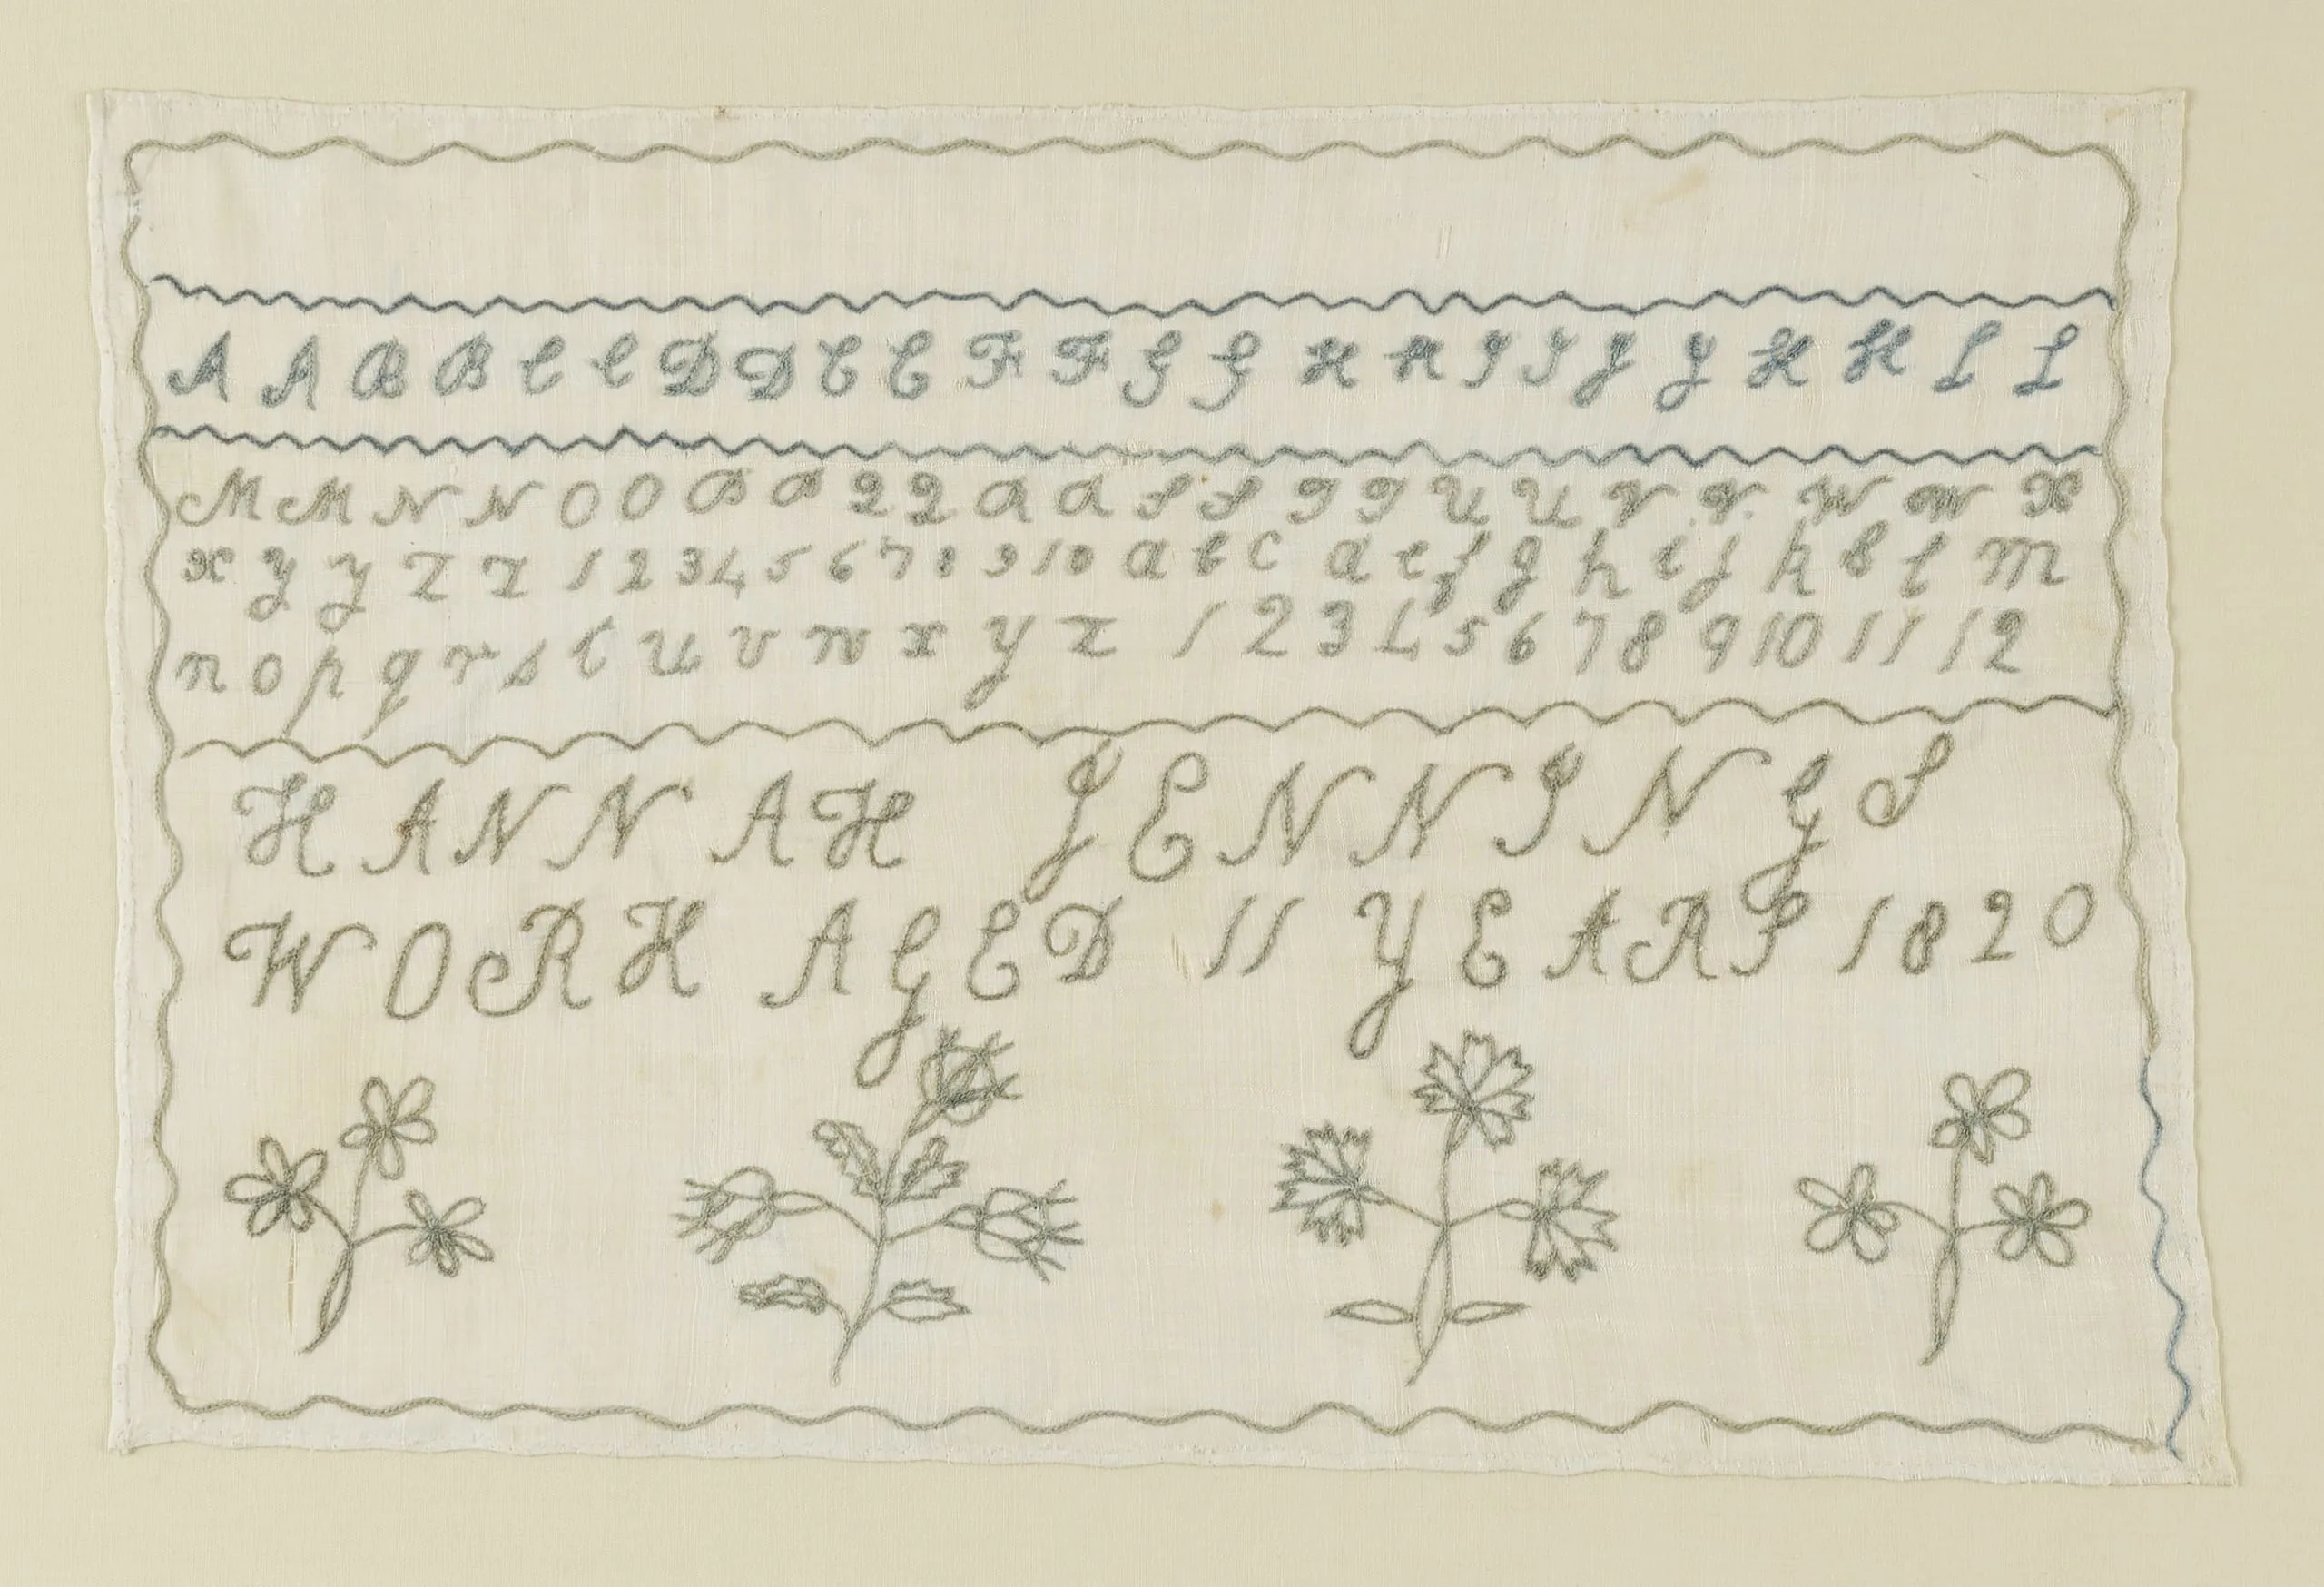 A A B B C C D D E E F F G G H H I I J J K K L L
M M N N O O P P Q Q R R S S T T U U V V W W X
X Y Y Z Z 1 2 3 4 5 6 7 8 9 10 a b c d e f g h i j k l m
n o p q r s t u v w x y z 1 2 3 4 5 6 7 8 9 10 11 12
HANNAH JENNINGS
WORK AGED 11 YEARS 1820